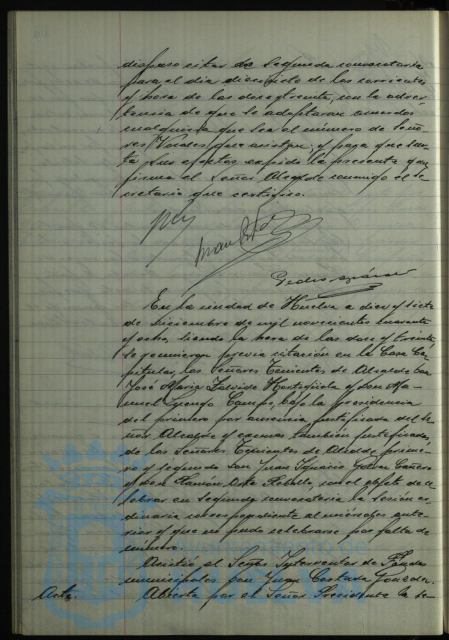 dispuso citar de segunda convocatoria
para el dia diecisiete de los corrientes
y hora de las doce y treinta, con la adver-
tencia de que se adoptaran acuerdos
cualquiera que sea el número de Seño-
res Vocales que asistan; y para que sur-
ta sus efectos expido la presente que
firma el Señor Alcalde conmigo el Se-
cretario que certifico.
Pedro
En la ciudad de Huelva a diez y siete
de Diciembre de mil novecientos cuarenta
y ocho, siendo la hora de las doce y treinta
se reunieron previa citación en la Casa Ca-
pitular, los Señores Tenientes de Alcalde Don
José Maria y Don Ma-
nuel Campo, bajo la presidencia
del primero por ausencia justificada del Se-
ñor Alcalde y excusa también justificada
de los Señores Tenientes de Alcalde prime-
ro y segundo Don Juan Ignacio
y Don Ramón con el objeto de ce-
lebrar en segunda convocatoria la sesión or-
dinaria correspondiente al miércoles ante-
rior y que no pudo celebrarse por falta de
número.
Asistió el Señor Interventor de Fondos
municipales Don Juan
Acta. Abierta por el Señor Presidente la se-